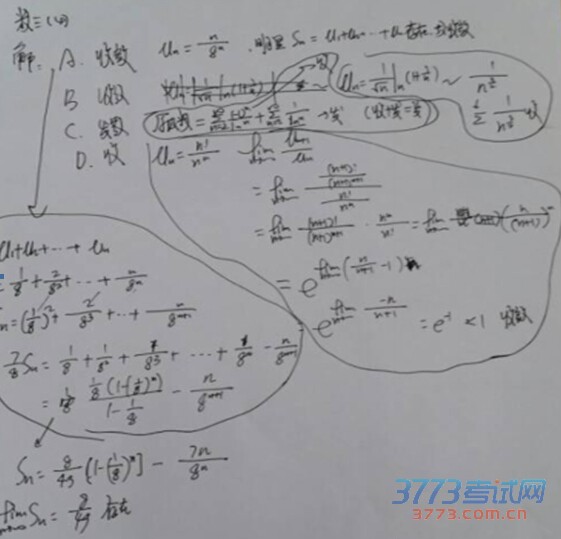 数三(4)
解: A. 收敛 Un = n/8^n, 明显 Sn = U1+U2+…+Un 存在, 故收敛
B 收敛 Un = 1/√n ln(1+1/n) ~ 1/n^(3/2)
C. 发散 原级数 = → 发 (收+发=发) Σ 1/n^(3/2) 收
D. 收 Un = n!/n^n lim U(n+1)/Un
= lim ((n+1)!/(n+1)^(n+1))/(n!/n^n)
= lim (n+1)!/(n+1)^(n+1) · n^n/n! = lim (n+1) (n/(n+1))^n
= e^(lim (n/(n+1) -1)n)
e^(lim -n/(n+1)) = e^-1 < 1 收敛
U1+U2+…+Un
= 1/8 + 2/8^2 + … + n/8^n
= (1/8)^2 + 2/8^3 + … + n/8^(n+1)
7/8 Sn = 1/8 + 1/8^2 + 1/8^3 + … + 1/8^n - n/8^(n+1)
= 1/8 (1-(1/8)^n)/(1-1/8) - n/8^(n+1)
Sn = 8/49 [1-(1/8)^n] - 7n/8^n
lim Sn = 8/49 存在
3773考试网
3773.com.cn